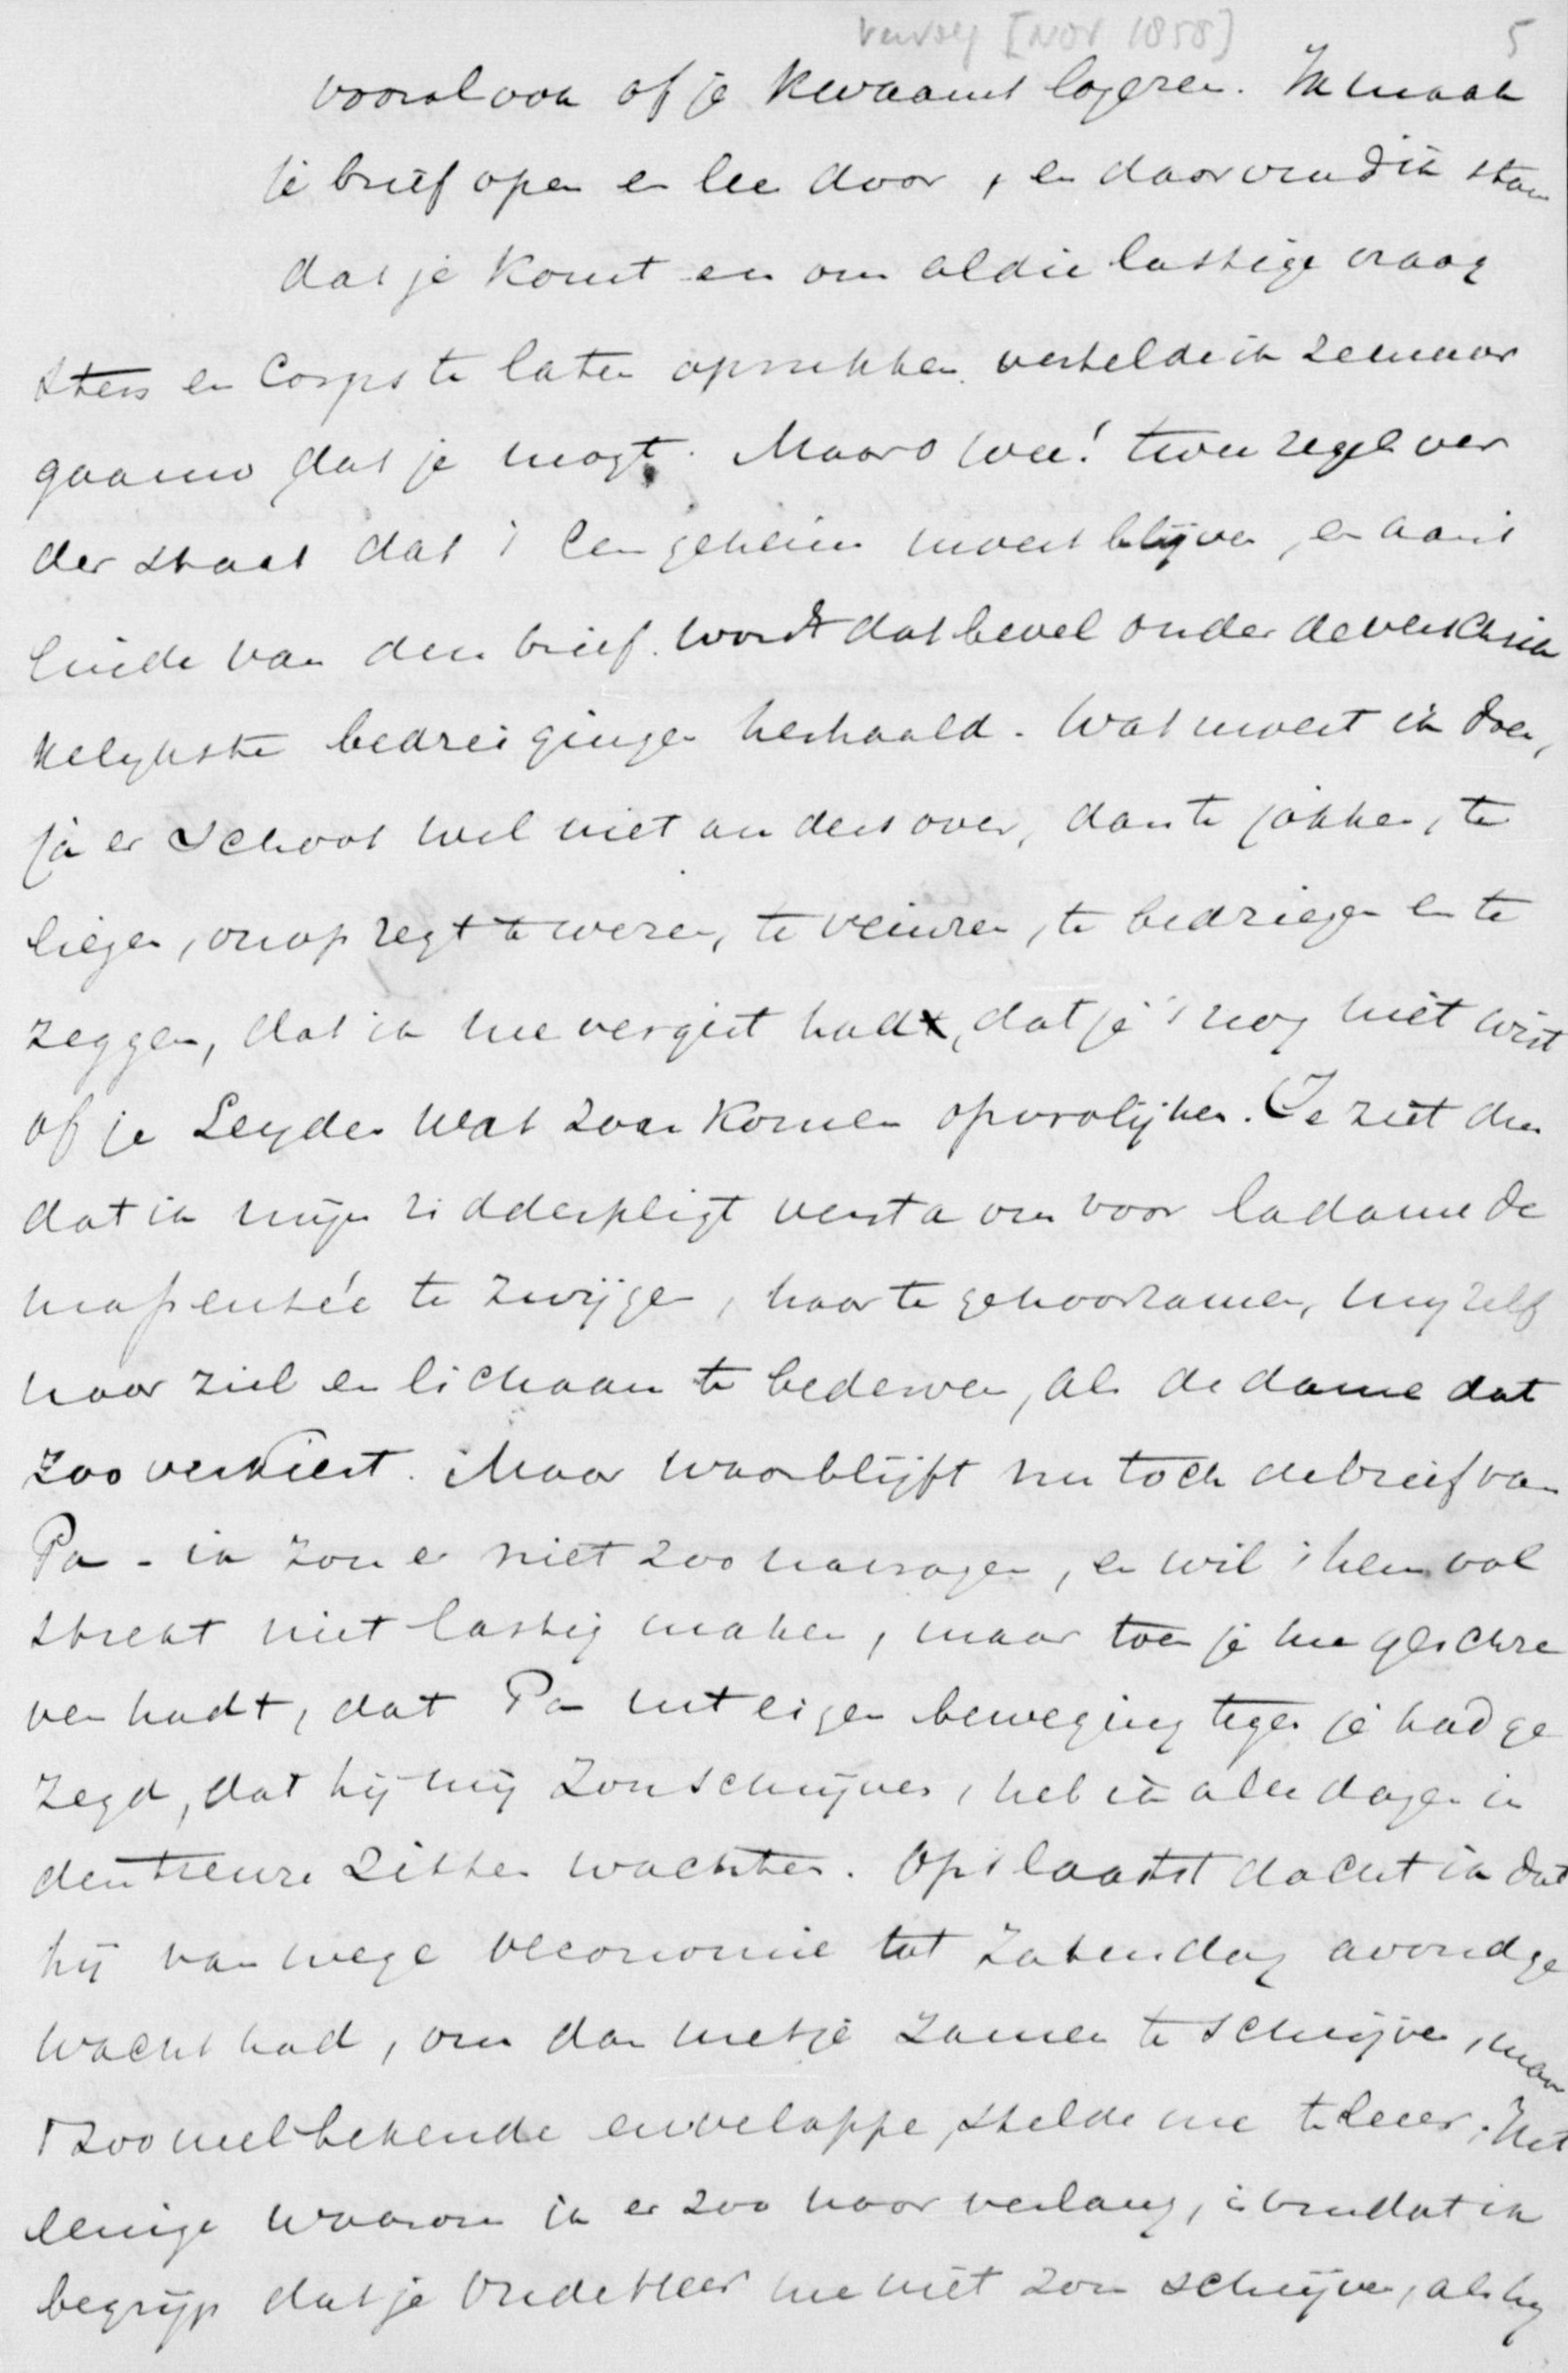 vervolg [Nov 1858] 5
vooral ook of je kwaamt logeren. Ik maak
je brief open en lee door, en daar vond ik staan
dat je komt en om al die lastige vraag
sters en corps te laten oprukken vertelde ik ze maar
gaauw dat je mogt. Maar o wee! twee regels ver
der staat dat 't een geheim moest blijven, en aan 't
einde van den brief wordt dat bevel onder de verschrik
kelykste bedreigingen herhaald. Wat moest ik doen,
ja er schoot wel niet anders over, dan te jokken, te
liegen, onopregt te wezen, te veinzen, te bedriegen en te
zeggen, dat ik me vergist had, dat je 't nog niet wist
of je Leyden wat zou komen opvrolijken. Je ziet dus
dat ik mijn ridderpligt versta om voor la dame de
ma pensée te zwijgen, haar te gehoorzamen, my zelf
naar ziel en lichaam te bederven, als de dame dat
zoo verkiest. Maar waar blijft nu toch de brief van
Pa - ik zou er niet zoo naar vragen, en wil 't hem vol
strekt niet lastig maken, maar toen je me geschre
ven hadt, dat Pa uit eigen beweging tegen je had ge
zegd, dat hij mij zou schrijven, heb ik alle dagen in
den treure zitten wachten. Op 't laatst dacht ik dat
hij van wege oeconomie tot Zaturdag avond ge
wacht had, om dan met je zamen te schrijven, maar
't zoo welbekende enveloppe stelde me te leur. Het
eenige waarom ik er zoo naar verlang, is omdat ik
begrijp dat je Oudeheer me niet zou schrijven, als hy